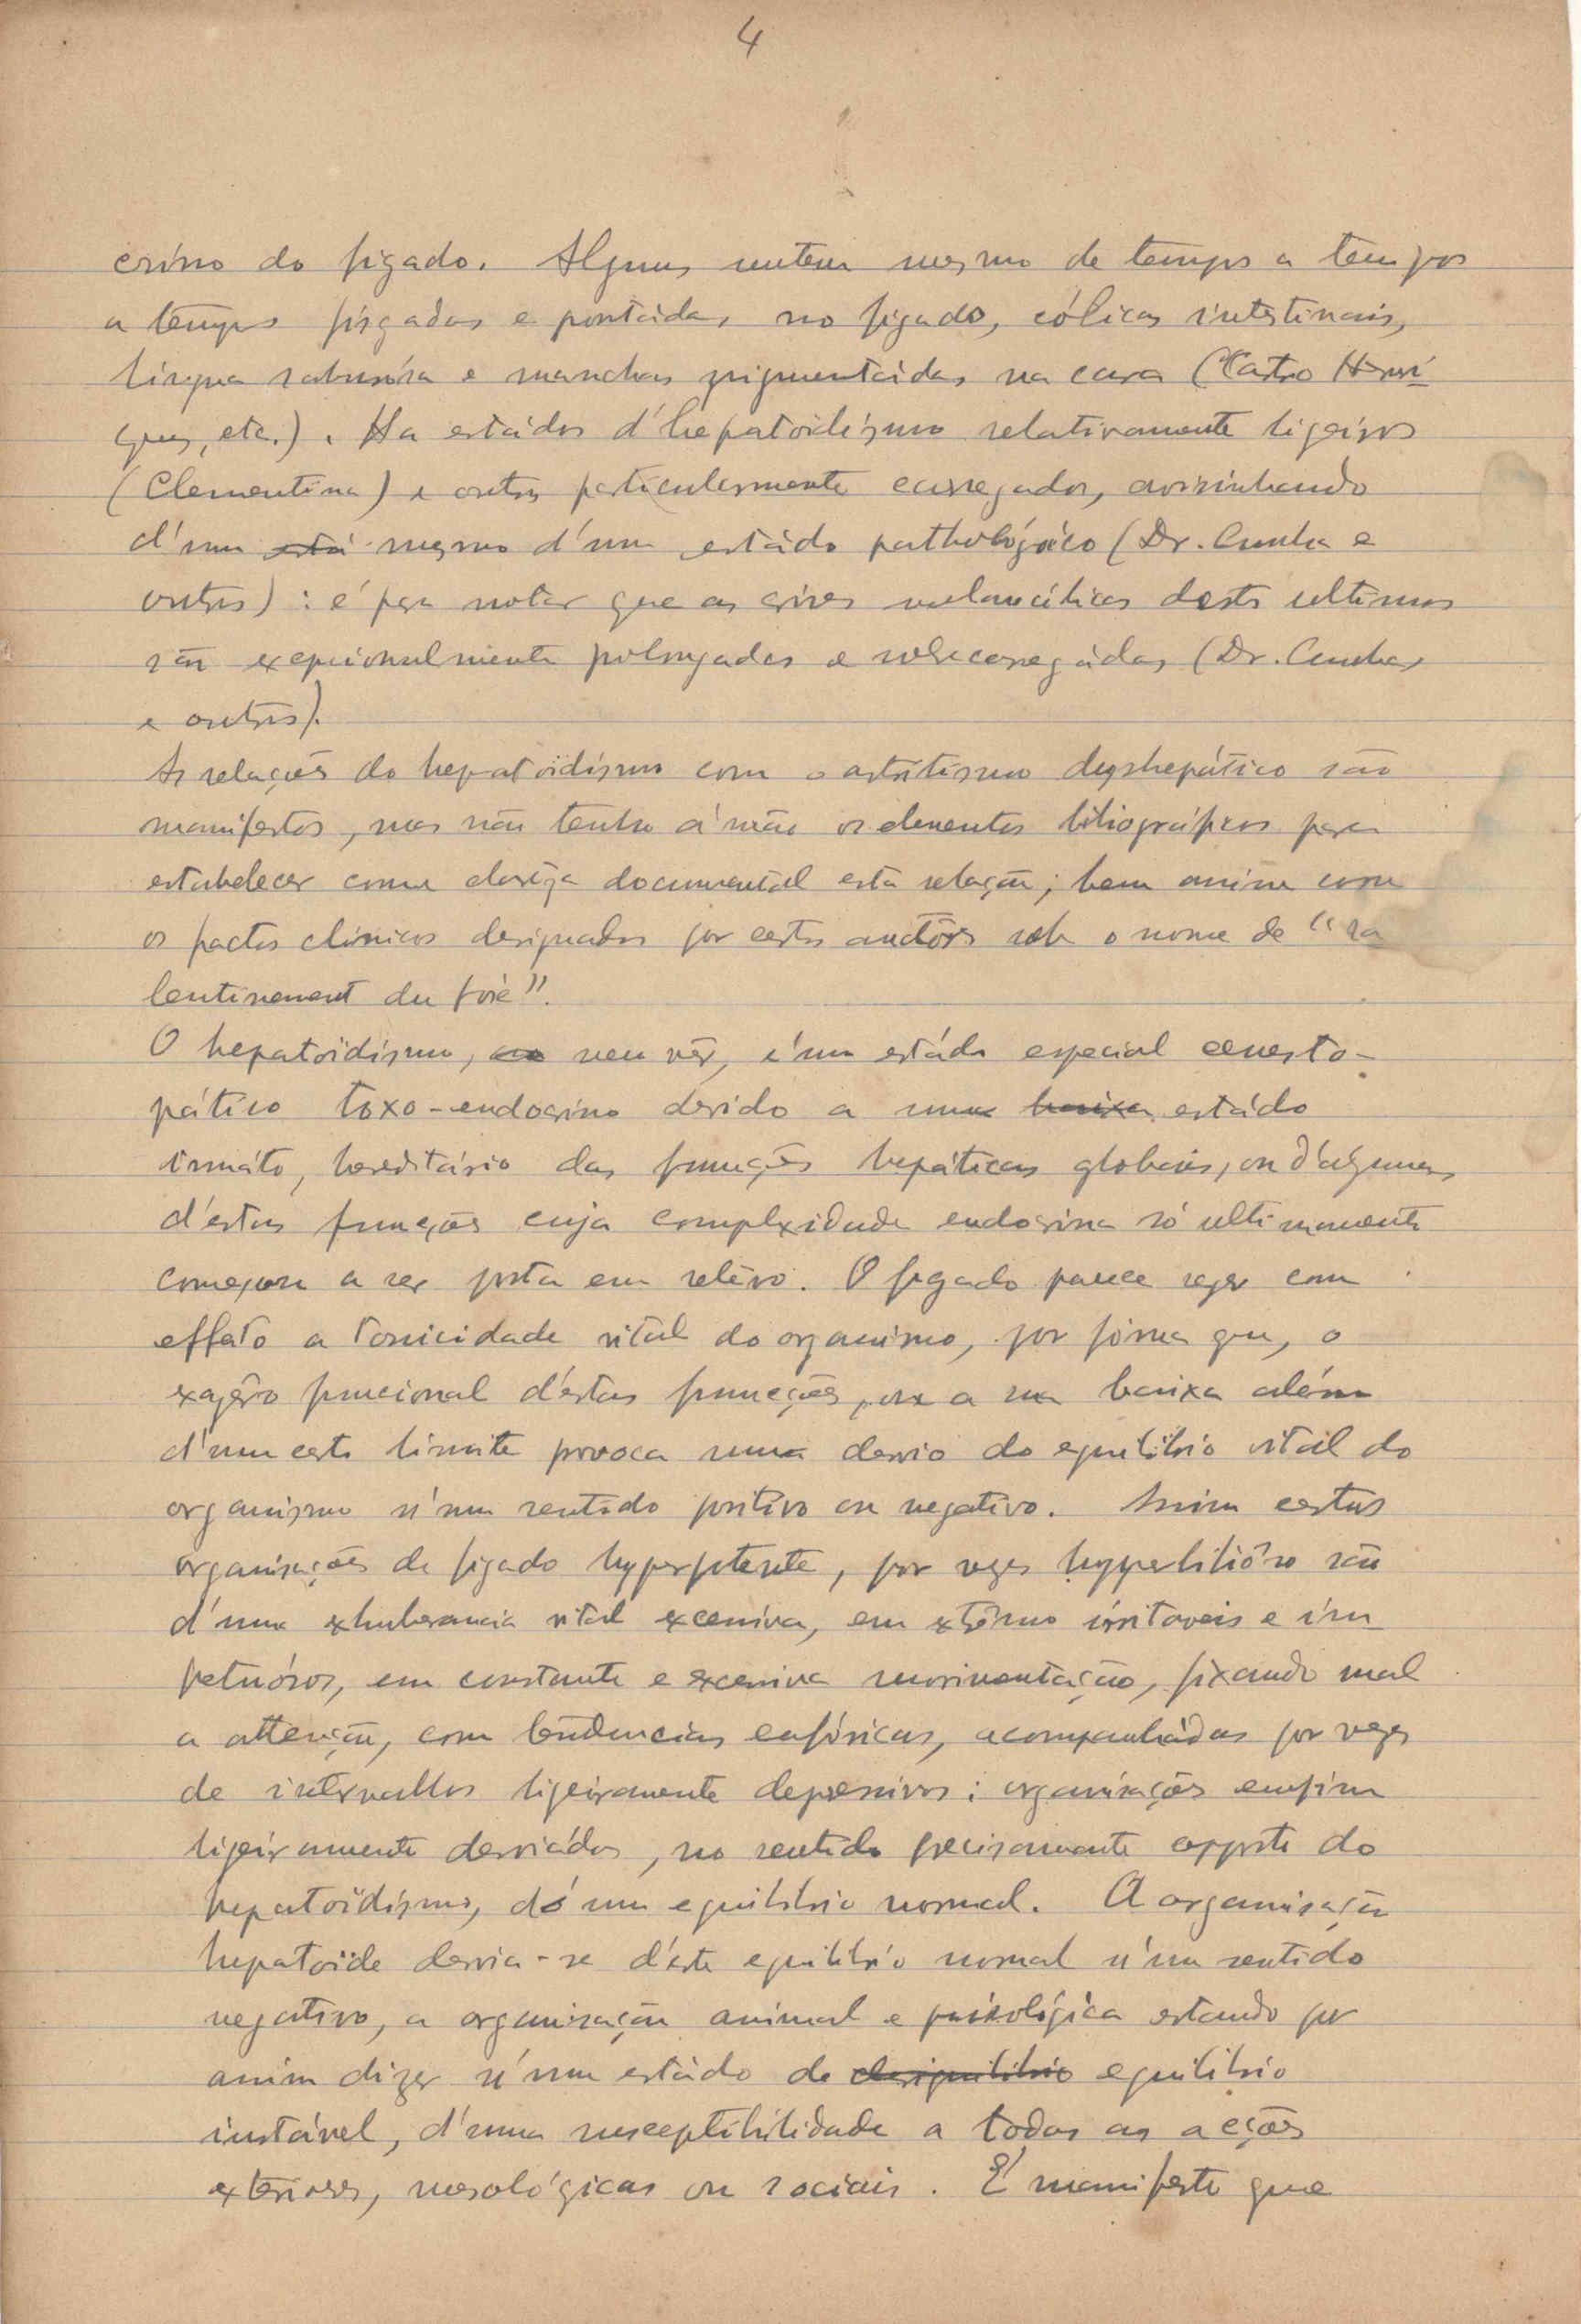 4
crino do figado. Alguns sentem mesmo de tempos a tempos
a tempos fisgadas e pontádas no figado, cólicas intestinais,
lingua saburósa e manchas pigmentádas na cara (Castro Henri
ques, etc.). Ha estádos d'hepatoidismo relativamente ligeiros
(Clementina) e outros particularmente carregados, avisinhando
d'um está mesmo d'um estádo pathológico (Dr. Cunha e
outros): é pra notar que as crises melancólicas destes ultimos
são excepcionalmente prolongadas e sobrecarregádas (Dr. Cunha,
e outros).
As relações do hepatoïdismo com o artritismo dyshepático são
manifestas, mas não tenho á mão os elementos bibliográficos para
establecer com clarêza documental esta relação; bem assim com
os factos clinicos designados por certos auctôres sob o nome de "ra
lentissement du foie".
O hepatoïdismo, ao meu vêr, é um estádo especial cenesto-
pático toxo-endocrino devido a uma baixa estádo
innáto, hereditário das funcções hepáticas globais, ou d'algumas
d'estas funcções cuja complexidade endocrina só ultimamente
começou a ser posta em relêvo. O figado parece reger com
effeito a tonicidade vital do organismo, por fórma que, o
exagêro funcional d'estas funcções, ou a sua baixa além
d'um certo limite provoca um desvio do equilibrio vital do
organismo n'um sentido positivo ou negativo. Assim certas
organisações de figado hyperpotente, por vezes hyperbiliôso são
d'uma exhuberancia vital excessiva, em extrêmo irritaveis e im
petuósos, em constante e excessiva movimentação, fixando mal
a attenção, com tendencias eufóricas, acompanhádas por vezes
de intervallos ligeiramente depressivos: organisações emfim
ligeiramente desviádas, no sentido precisamente opposto do
hepatoïdismo, do um equilibrio normal. A organisação
hepatoïde desvia-se d'este equilibrio normal n'um sentido
negativo, a organisação animal e psicológica estando por
assim dizer n'um estádo de desiquilibrio equilibrio
instável, d'uma susceptibilidade a todas as acções
exteriores, mesológicas ou sociais. É manifesto que